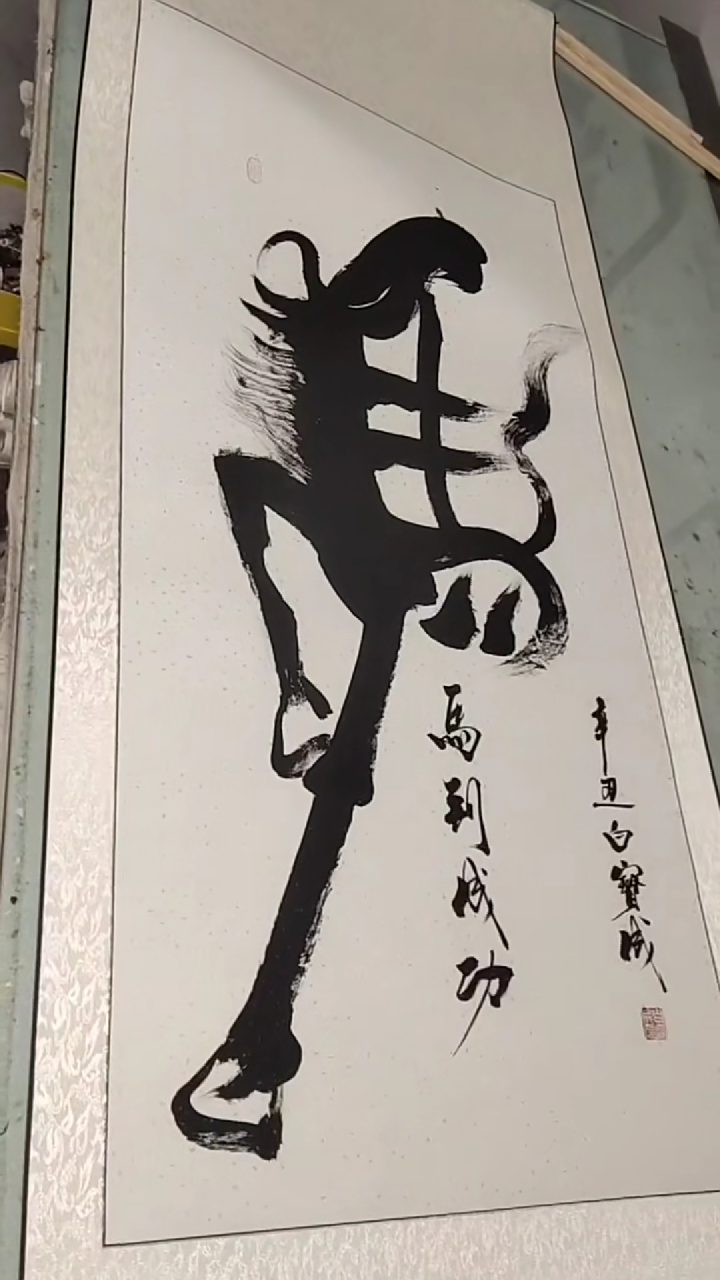 馬到成功
辛丑白寶成